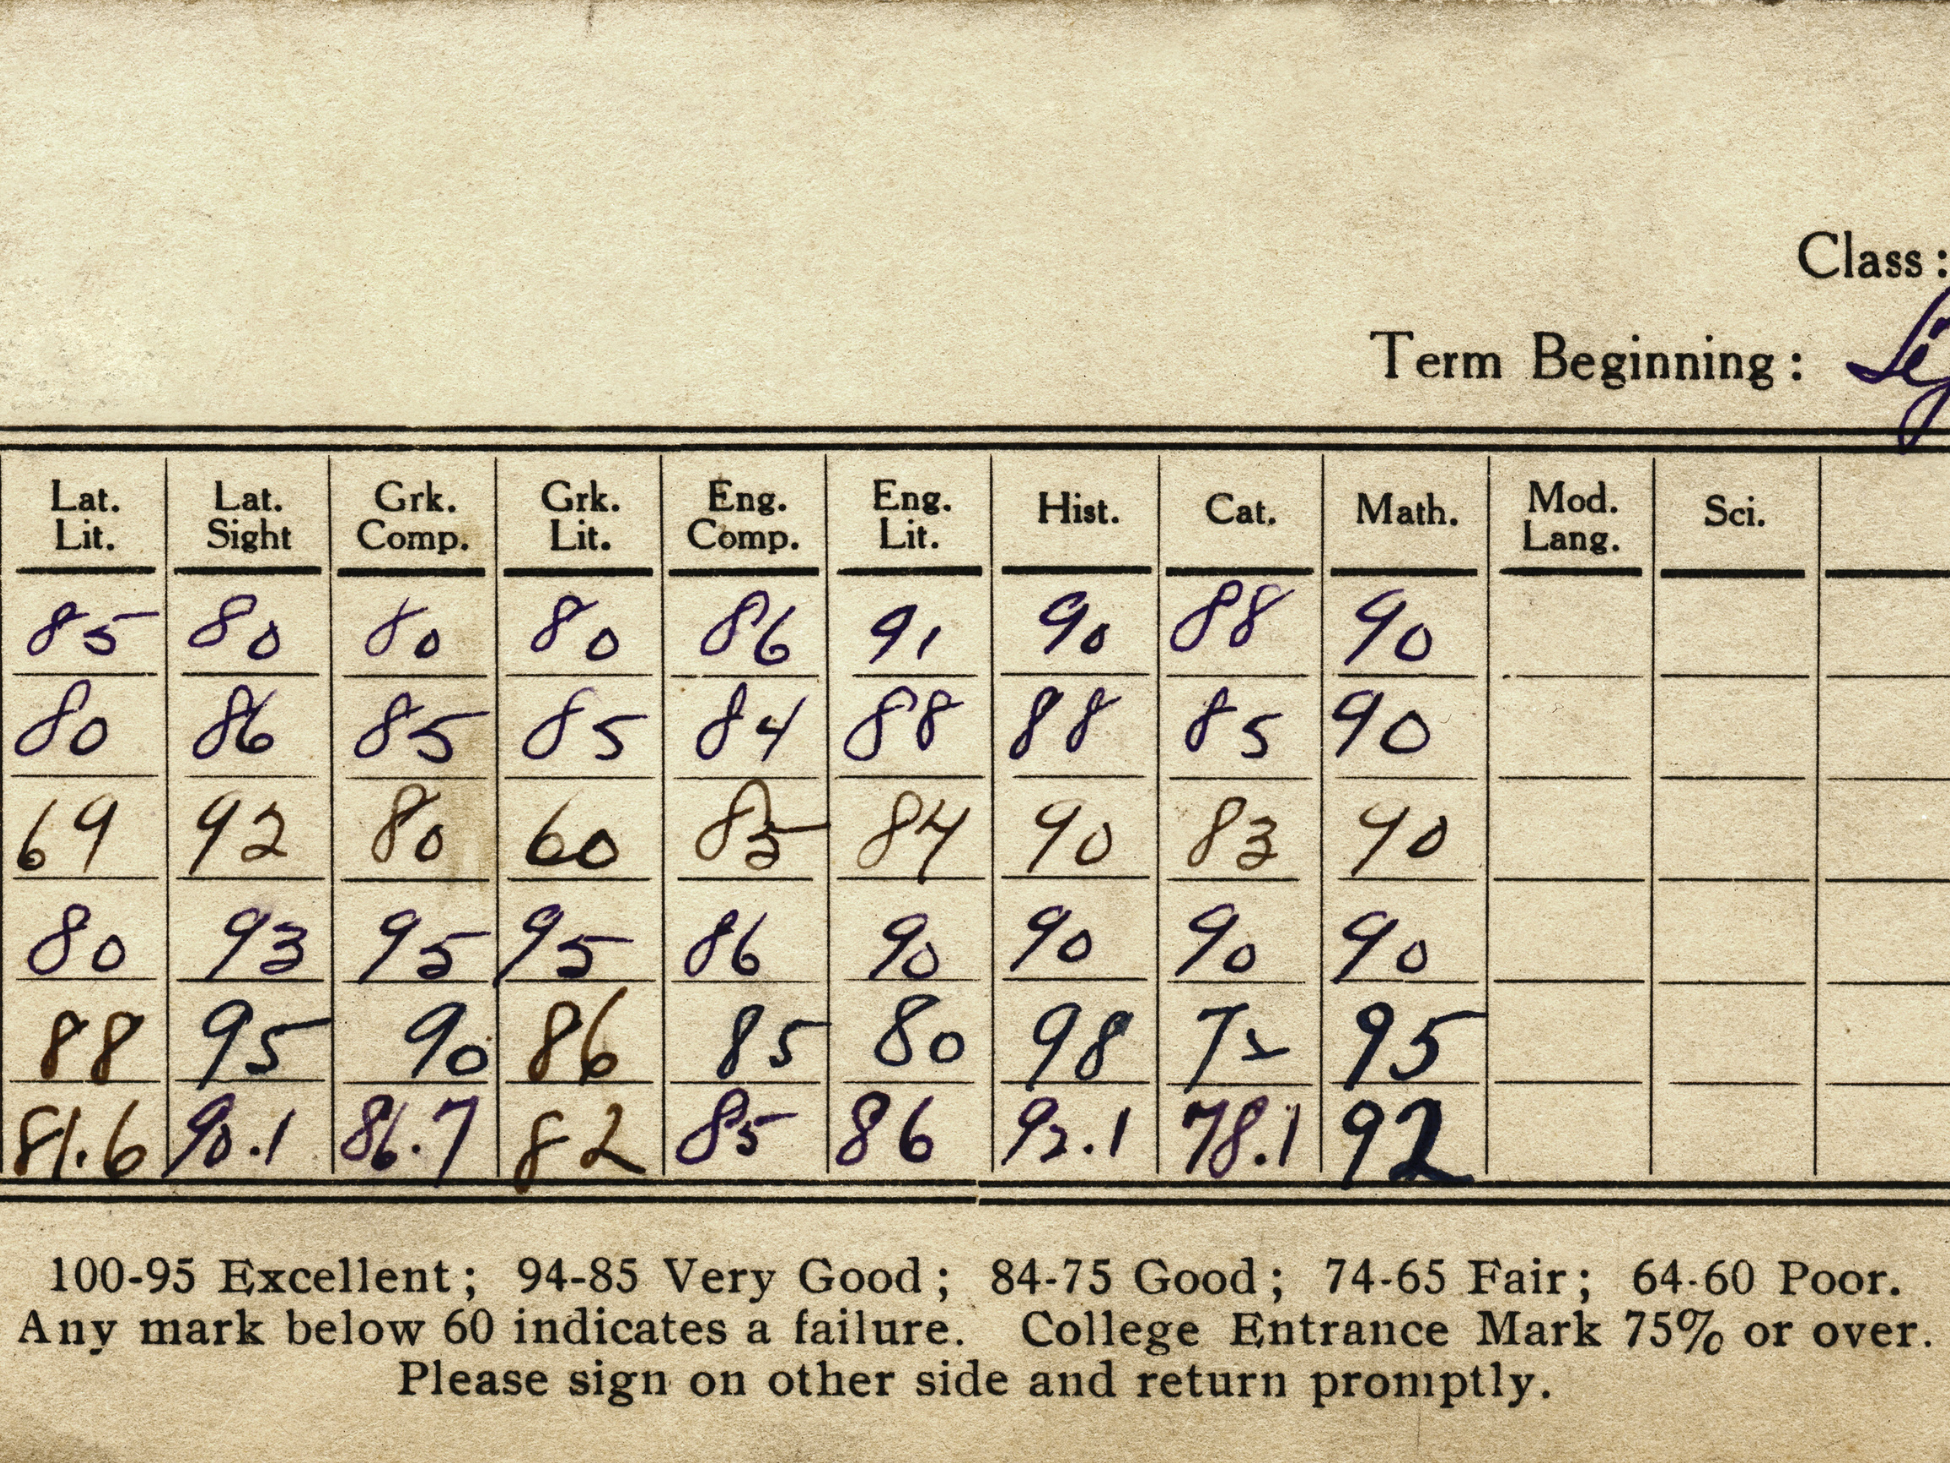 Class:
Term Beginning:
Lat. Lit. Lat. Sight Grk. Comp. Grk. Lit. Eng. Comp. Eng. Lit. Hist. Cat. Math. Mod. Lang. Sci.
85 80 80 80 86 91 90 88 90
80 86 85 85 84 88 88 85 90
69 92 80 60 85 84 90 83 90
80 93 95 95 86 90 90 90 90
88 95 90 86 85 80 98 95
81.6 90.1 86.7 82 85 86 92.1 78.1 92
100-95 Excellent; 94-85 Very Good; 84-75 Good; 74-65 Fair; 64-60 Poor.
Any mark below 60 indicates a failure. College Entrance Mark 75% or over.
Please sign on other side and return promptly.